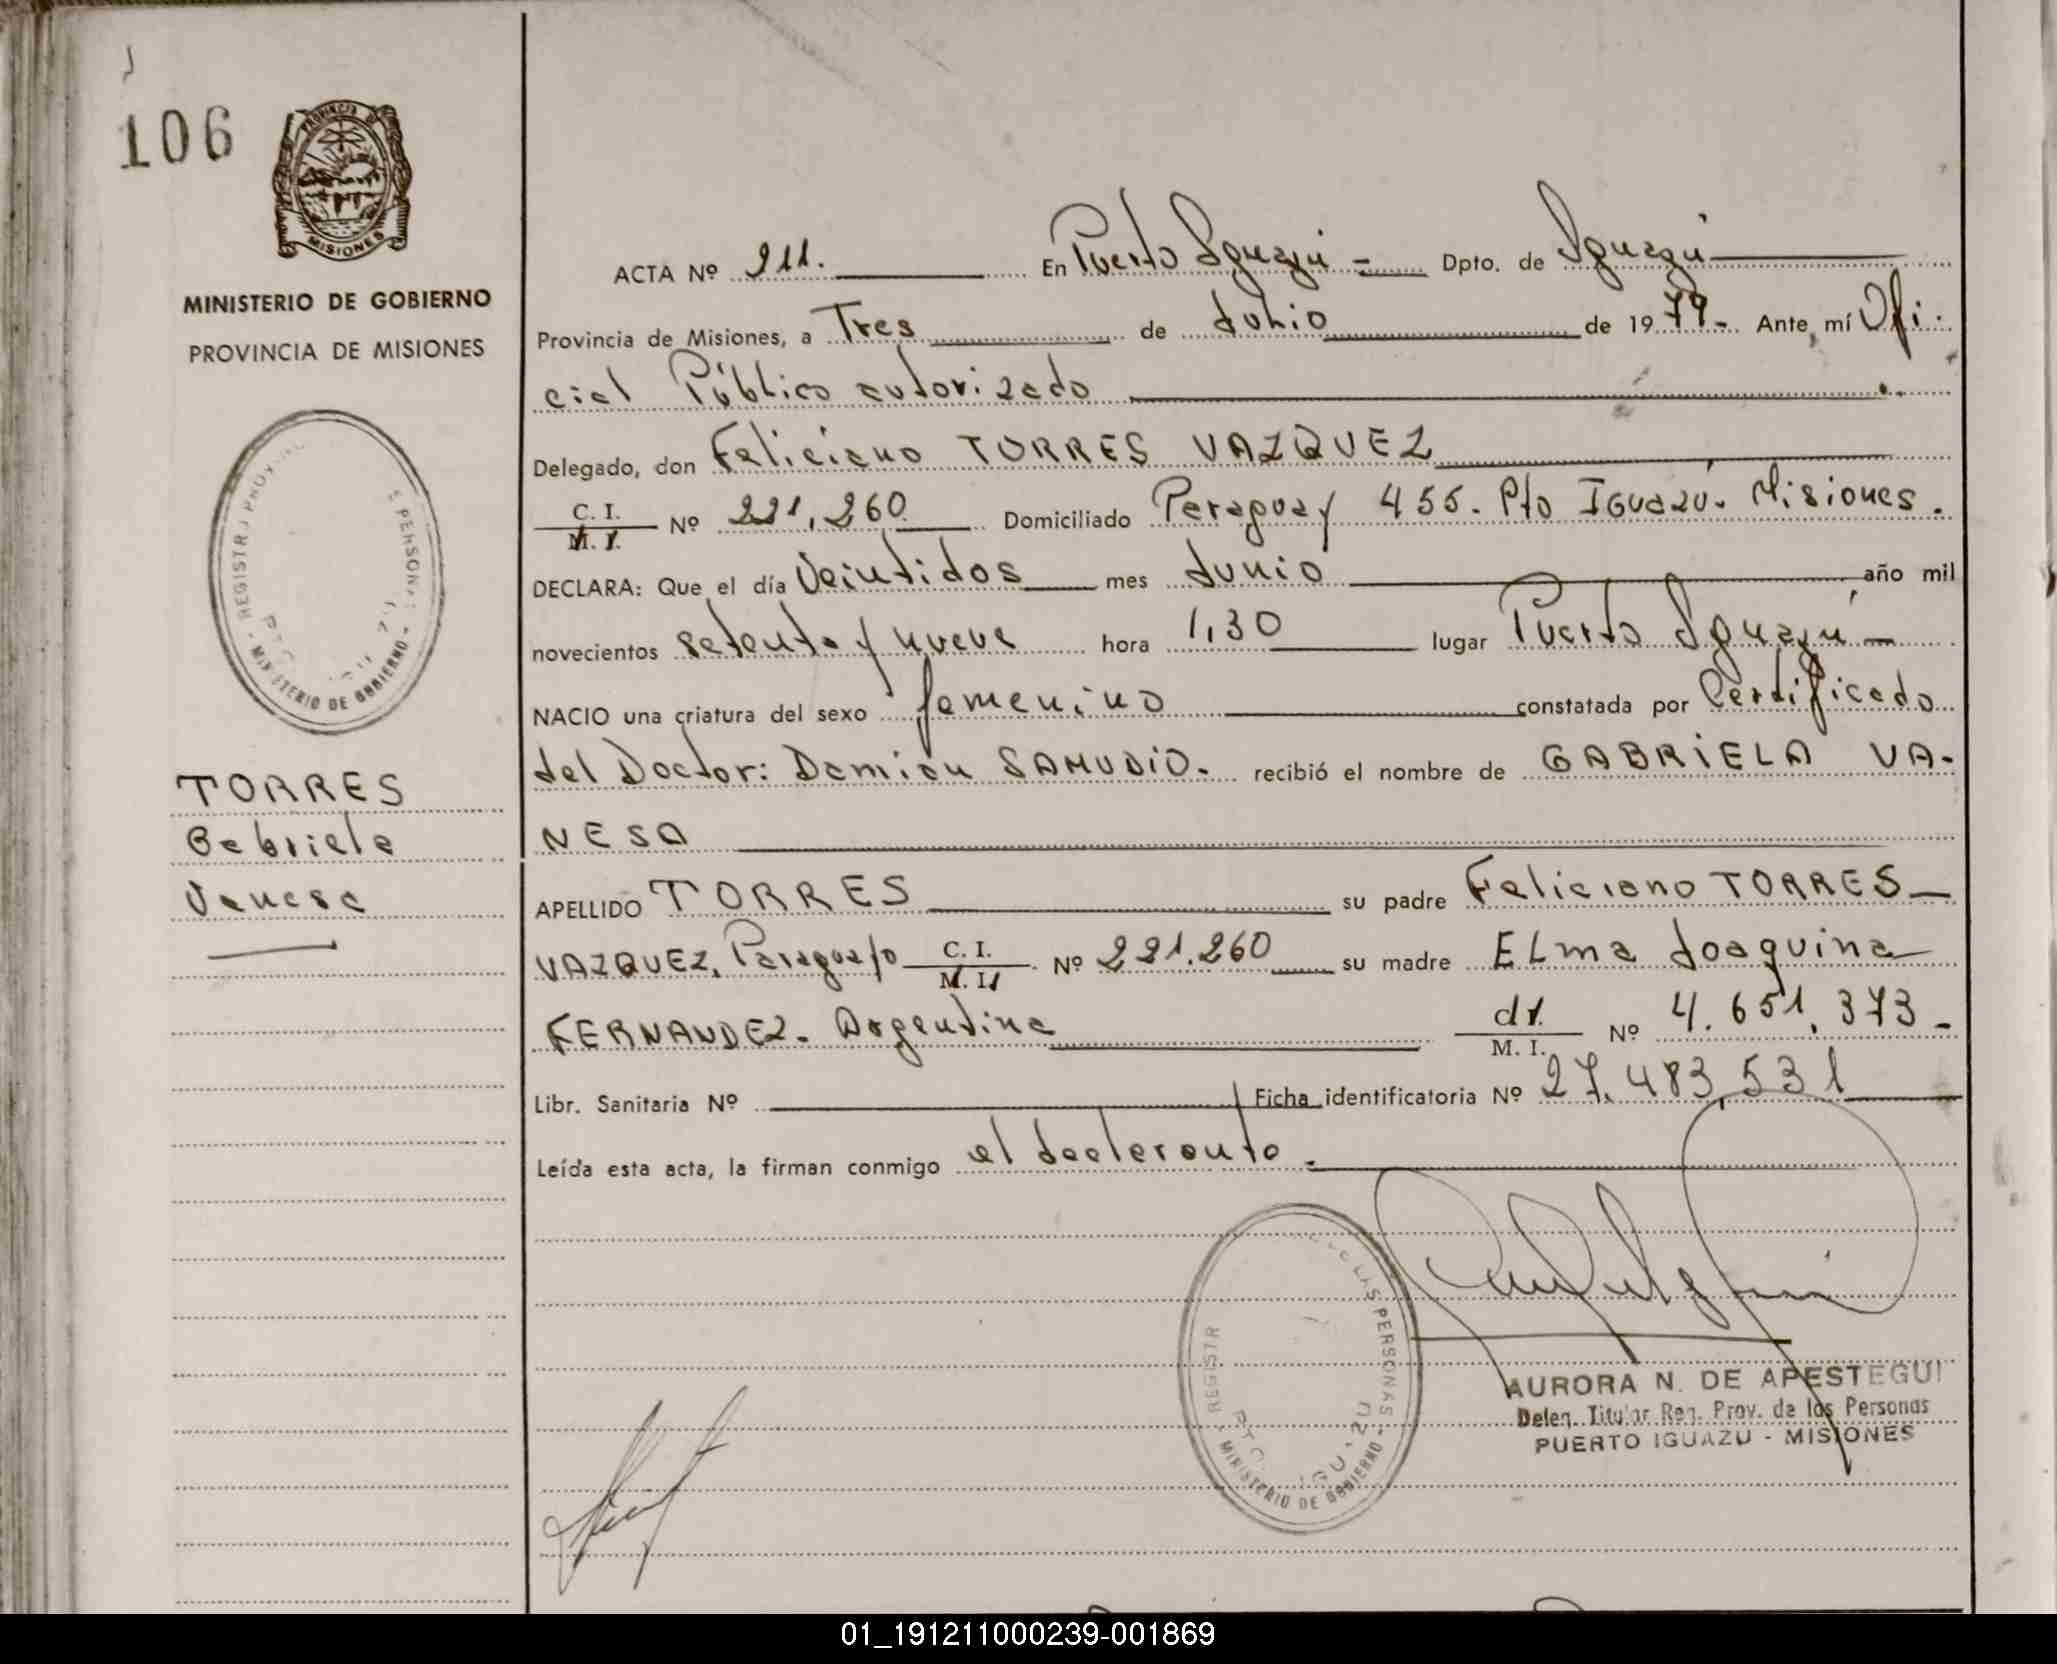 106
PROVINCIA DE
MISIONES
MINISTERIO DE GOBIERNO
PROVINCIA DE MISIONES
REGISTRO PROVINCIAL
PERSONAS
MINISTERIO DE GOBIERNO
TORRES
Gabriela
Vanesa
ACTA Nº 211. En Puerto Iguazú - Dpto. de Iguazú
Provincia de Misiones, a Tres de Julio de 1979- Ante mí Ofi-
cial Público autorizado
Delegado, don Feliciano TORRES VAZQUEZ
C. I.
M. I. Nº 221.260 Domiciliado Paraguay 455. Pto Iguazú. Misiones.
DECLARA: Que el día Veintidos mes Junio año mil
novecientos setenta y nueve hora 1,30 lugar Puerto Iguazú -
NACIO una criatura del sexo femenino constatada por Certificado
del Doctor: Damian SAMUDIO. recibió el nombre de GABRIELA VA-
NESA
APELLIDO TORRES su padre Feliciano TORRES
VAZQUEZ, Paraguayo C. I. Nº 221.260 su madre ELma Joaquina
M. I.
FERNANDEZ. Argentina C. I. Nº 4.651.373-
M. I.
Libr. Sanitaria Nº Ficha identificatoria Nº 27.483.531
Leída esta acta, la firman conmigo el declarante.
REGISTR DE LAS PERSONAS
PTO. IGUAZU
MINISTERIO DE GOBIERNO
AURORA N. DE APESTEGUI
Deleg. Titular Reg. Prov. de las Personas
PUERTO IGUAZU - MISIONES
01_191211000239-001869